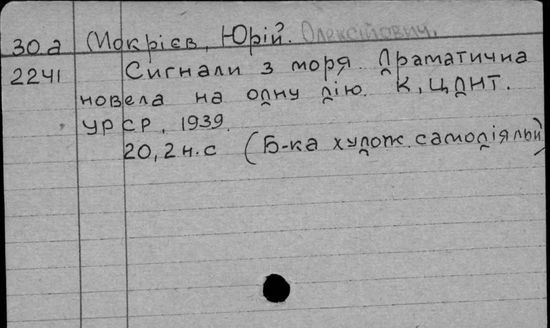 30а Мокрієв, Юрій. Олексійович.
2241 Сигнали з моря. Драматична
новела на одну дію. К, ЦДНТ.
УРСР, 1939.
20, 2 н.с (Б-ка худож. самодіяльн)